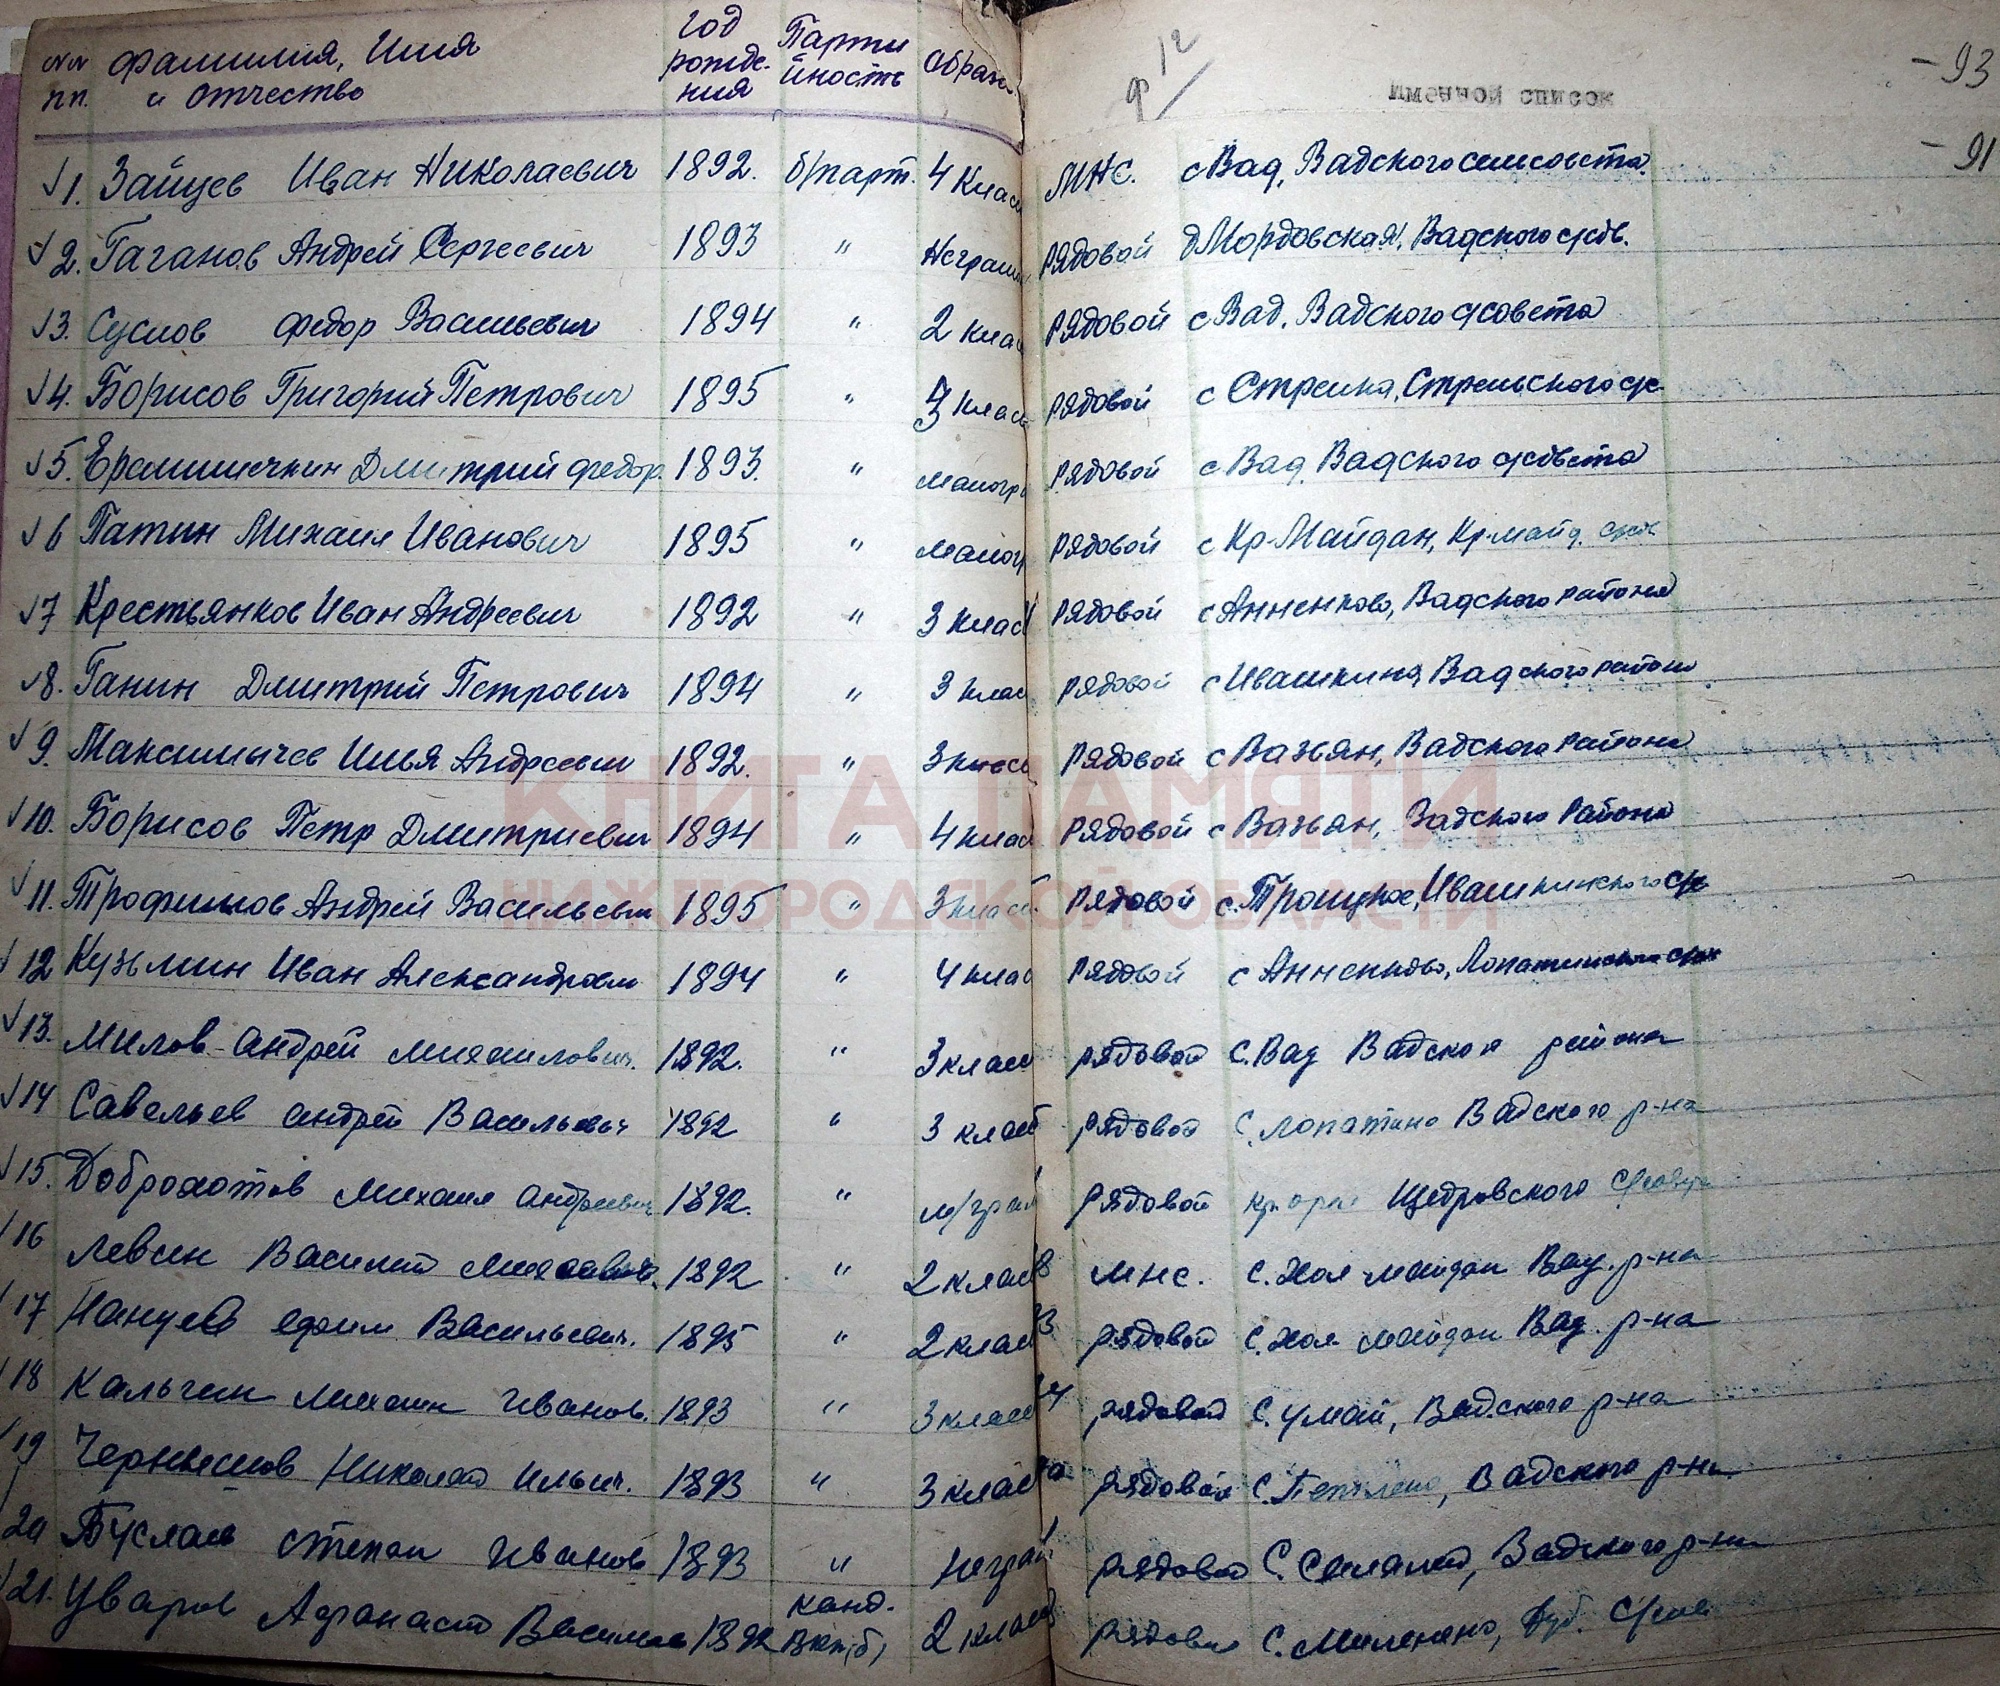 №№ Фамилия, Имя Год Парти Образ
п.п. и отчество рожде- йность
ния
ф 12
Именной список
- 93
- 91
1. Зайцев Иван Николаевич 1892. б/парт. 4 клас МНС. с Вад, Вадского сельсовета.
2. Гаганов Андрей Сергеевич 1893 " Неграм рядовой д Мордовская, Вадского с/сов.
3. Суслов Федор Васильевич 1894 " 2 клас рядовой с Вад. Вадского с/совета
4. Борисов Григорий Петрович 1895 " 3 клас рядовой с Стрелка, Стрельского с/с
5. Ерамишечкин Дмитрий Федор. 1893. " Малогр рядовой с Вад Вадского с/совета
6 Патин Михаил Иванович 1895 " Малогр рядовой с Кр-Майдан, Кр-майд. с/сов
7 Крестьянков Иван Андреевич 1892 " 3 клас рядовой с Анненково, Вадского района
8. Ганин Дмитрий Петрович 1894 " 3 клас рядовой с Ивашкина Вадского района
9. Максимычев Илья Андреевич 1892. " 3 класс рядовой с Вазьян, Вадского района
10. Борисов Петр Дмитриевич 1894 " 4 клас рядовой с Вазьян, Вадского района
КНИГА ПАМЯТИ
11. Трофимов Андрей Васильевич 1895 " 3 клас рядовой с. Троицкое, Ивашкинского с/с
НИЖЕГОРОДСКОЙ ОБЛАСТИ
12 Кузьмин Иван Александрович 1894 " 4 клас рядовой с Анненково, Лопатинского с/сов
13. Милов Андрей Михайлович. 1892. " 3 клас рядовой С. Вад Вадского района
14 Савельев Андрей Васильевич 1892 " 3 клас рядовой С. Лопатино Вадского р-на
15. Доброхотов Михаил Андреевич 1892. " м/грам рядовой Щедровского с/совета
16 Левин Василий 1892 " 2 клас мнс. С. Хол-майдан Вад. р-на
17 Нануев Ефим Васильевич. 1895 " 2 клас рядовой С. Хол майдан Вад. р-на
18 Кальгин Михаил Иванов. 1893 " 3 клас рядовой С. Умай, Вадского р-на
19 Чернышов Николай Ильич. 1893 " 3 клас рядовой С. Вадского р-на.
20 Буслаев Степан Иванов 1893 " неграм рядовой С. Вадского р-на
канд.
21. Уваров Афанасий Василье 1892 ВКП(б) 2 клас рядовой С. Дуб. с/сов